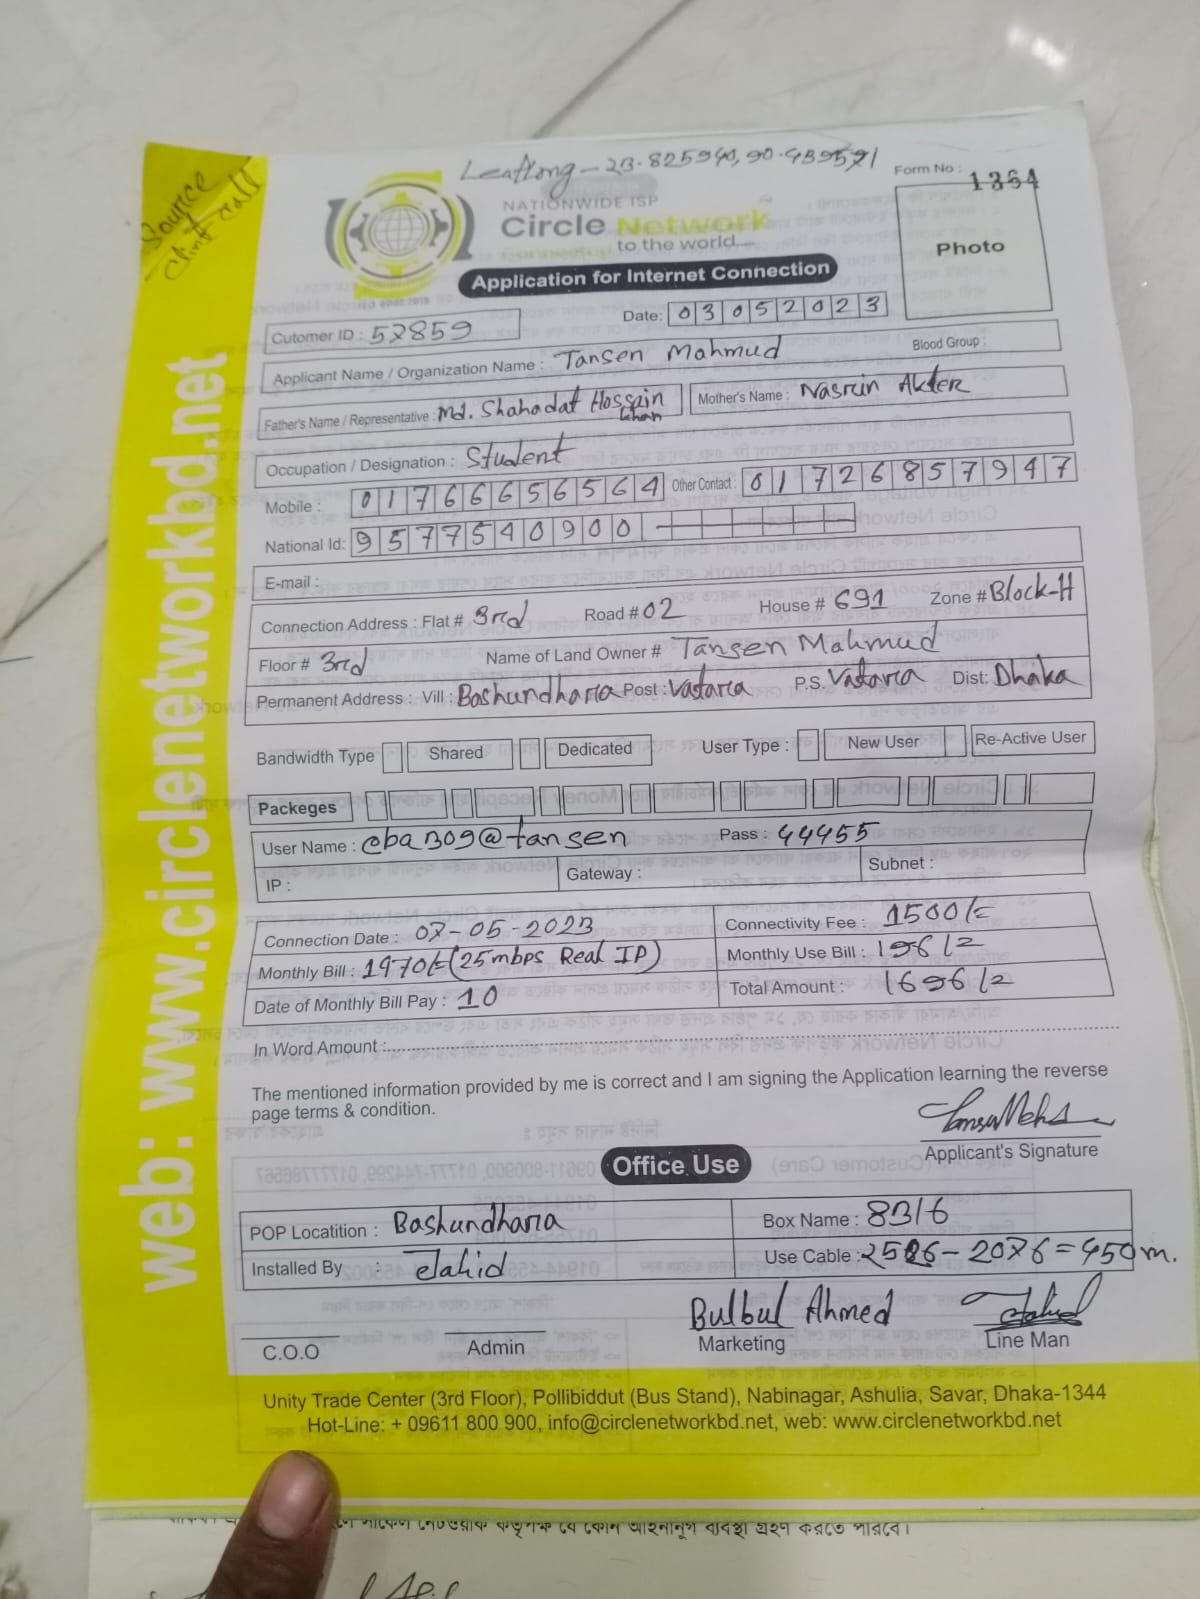 Source
Clint call
Leatlong - 23.825940, 90.439571
Form No : 1354
NATIONWIDE ISP
Circle Network
to the world....
Photo
Application for Internet Connection
Date: 03052023
Cutomer ID : 57859
Blood Group :
Applicant Name / Organization Name : Tansen Mahmud
Father's Name / Representative : Md. Shahadat Hossain khan Mother's Name : Nasrin Akter
Occupation / Designation : Student
Mobile : 01766656564 Other Contact : 01726857947
National Id: 9577540900
E-mail :
Connection Address : Flat # 3rd Road # 02 House # 691 Zone # Block-H
Floor # 3rd Name of Land Owner # Tansen Mahmud
Permanent Address : Vill : Bashundhara Post : Vatara P.S. Vatara Dist: Dhaka
Bandwidth Type Shared Dedicated User Type : New User Re-Active User
Packeges
User Name : cba309@tansen Pass : 44455
IP : Gateway : Subnet :
Connection Date : 07-05-2023 Connectivity Fee : 1500/=
Monthly Bill : 1970/= (25mbps Real IP) Monthly Use Bill : 196/=
Date of Monthly Bill Pay : 10 Total Amount : 1696/=
In Word Amount :
The mentioned information provided by me is correct and I am signing the Application learning the reverse
page terms & condition.
Applicant's Signature
Office Use
POP Locatition : Bashundhara Box Name : 8316
Installed By : Jahid Use Cable : 2526 - 2076 = 450 m.
Bulbul Ahmed Jahid
C.O.O Admin Marketing Line Man
Unity Trade Center (3rd Floor), Pollibiddut (Bus Stand), Nabinagar, Ashulia, Savar, Dhaka-1344
Hot-Line: + 09611 800 900, info@circlenetworkbd.net, web: www.circlenetworkbd.net
web: www.circlenetworkbd.net
কর্তৃপক্ষ যে কোন আইনানুগ ব্যবস্থা গ্রহণ করতে পারবে।